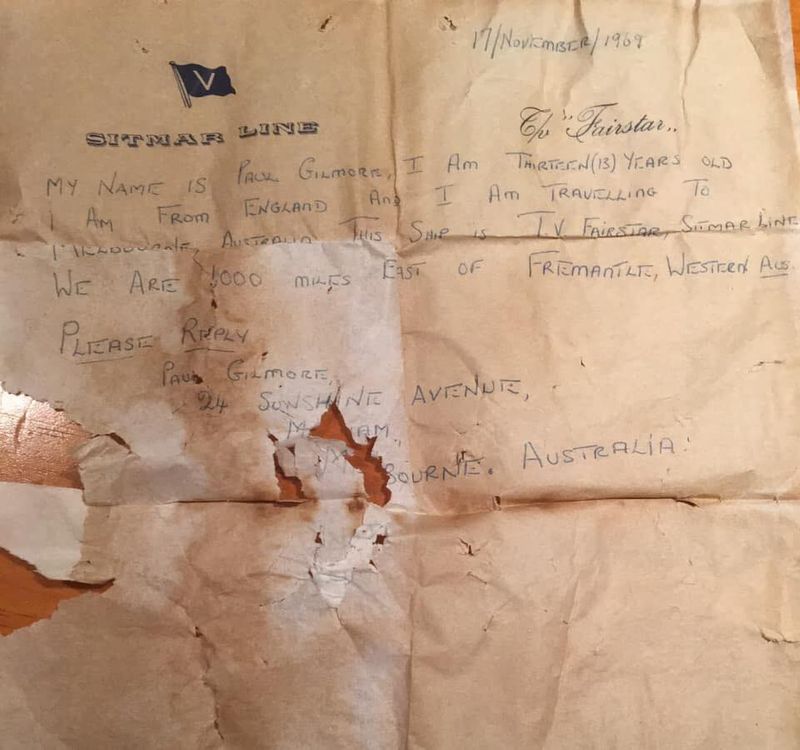 17/NOVEMBER/1969
V
SITMAR LINE
T/v "Fairstar"
MY NAME IS PAUL GILMORE, I AM THIRTEEN(13) YEARS OLD
I AM FROM ENGLAND AND I AM TRAVELLING TO
MELBOURNE, AUSTRALIA THIS SHIP IS T.V FAIRSTAR, SITMAR LINE
WE ARE 1000 MILES EAST OF FREMANTLE, WESTERN AUS
PLEASE REPLY
PAUL GILMORE,
24 SUNSHINE AVENUE,
AUSTRALIA.